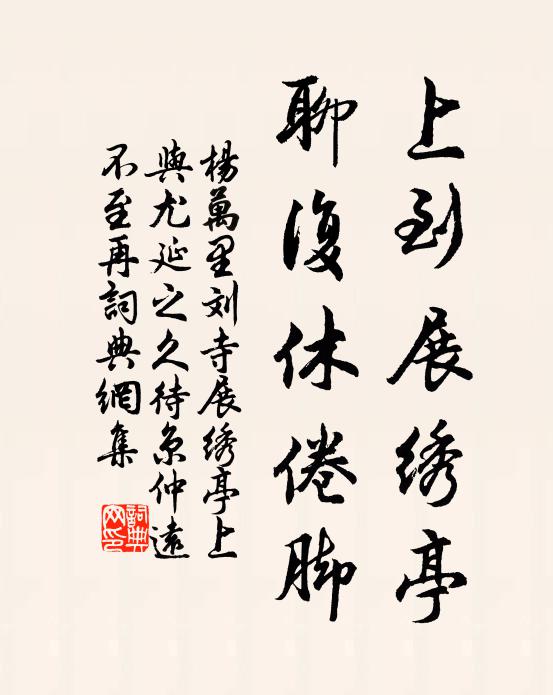 上到展绣亭
聊復休倦脚
楊萬里刘寺展绣亭上
與尤延之久待京仲遠
不至再詞典網集
詞典
网印